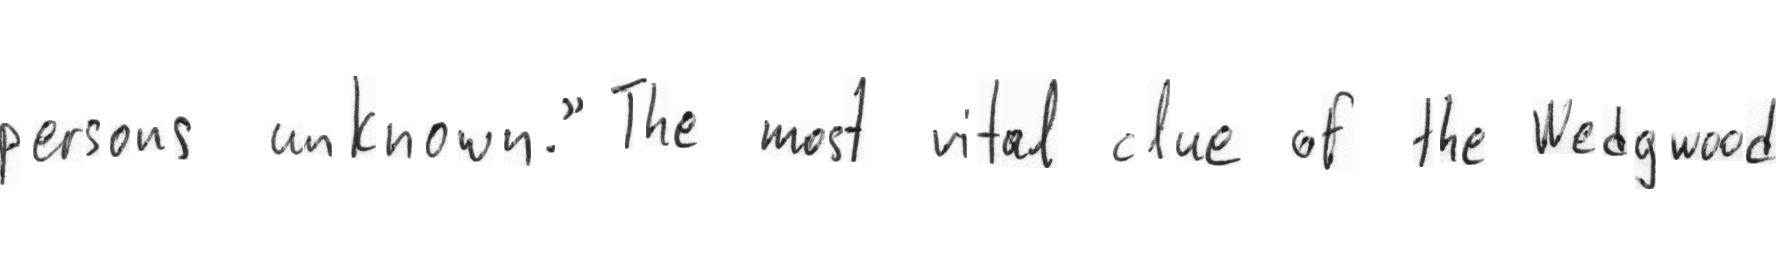 persons unknown.” The most vital clue of the Wedgwood